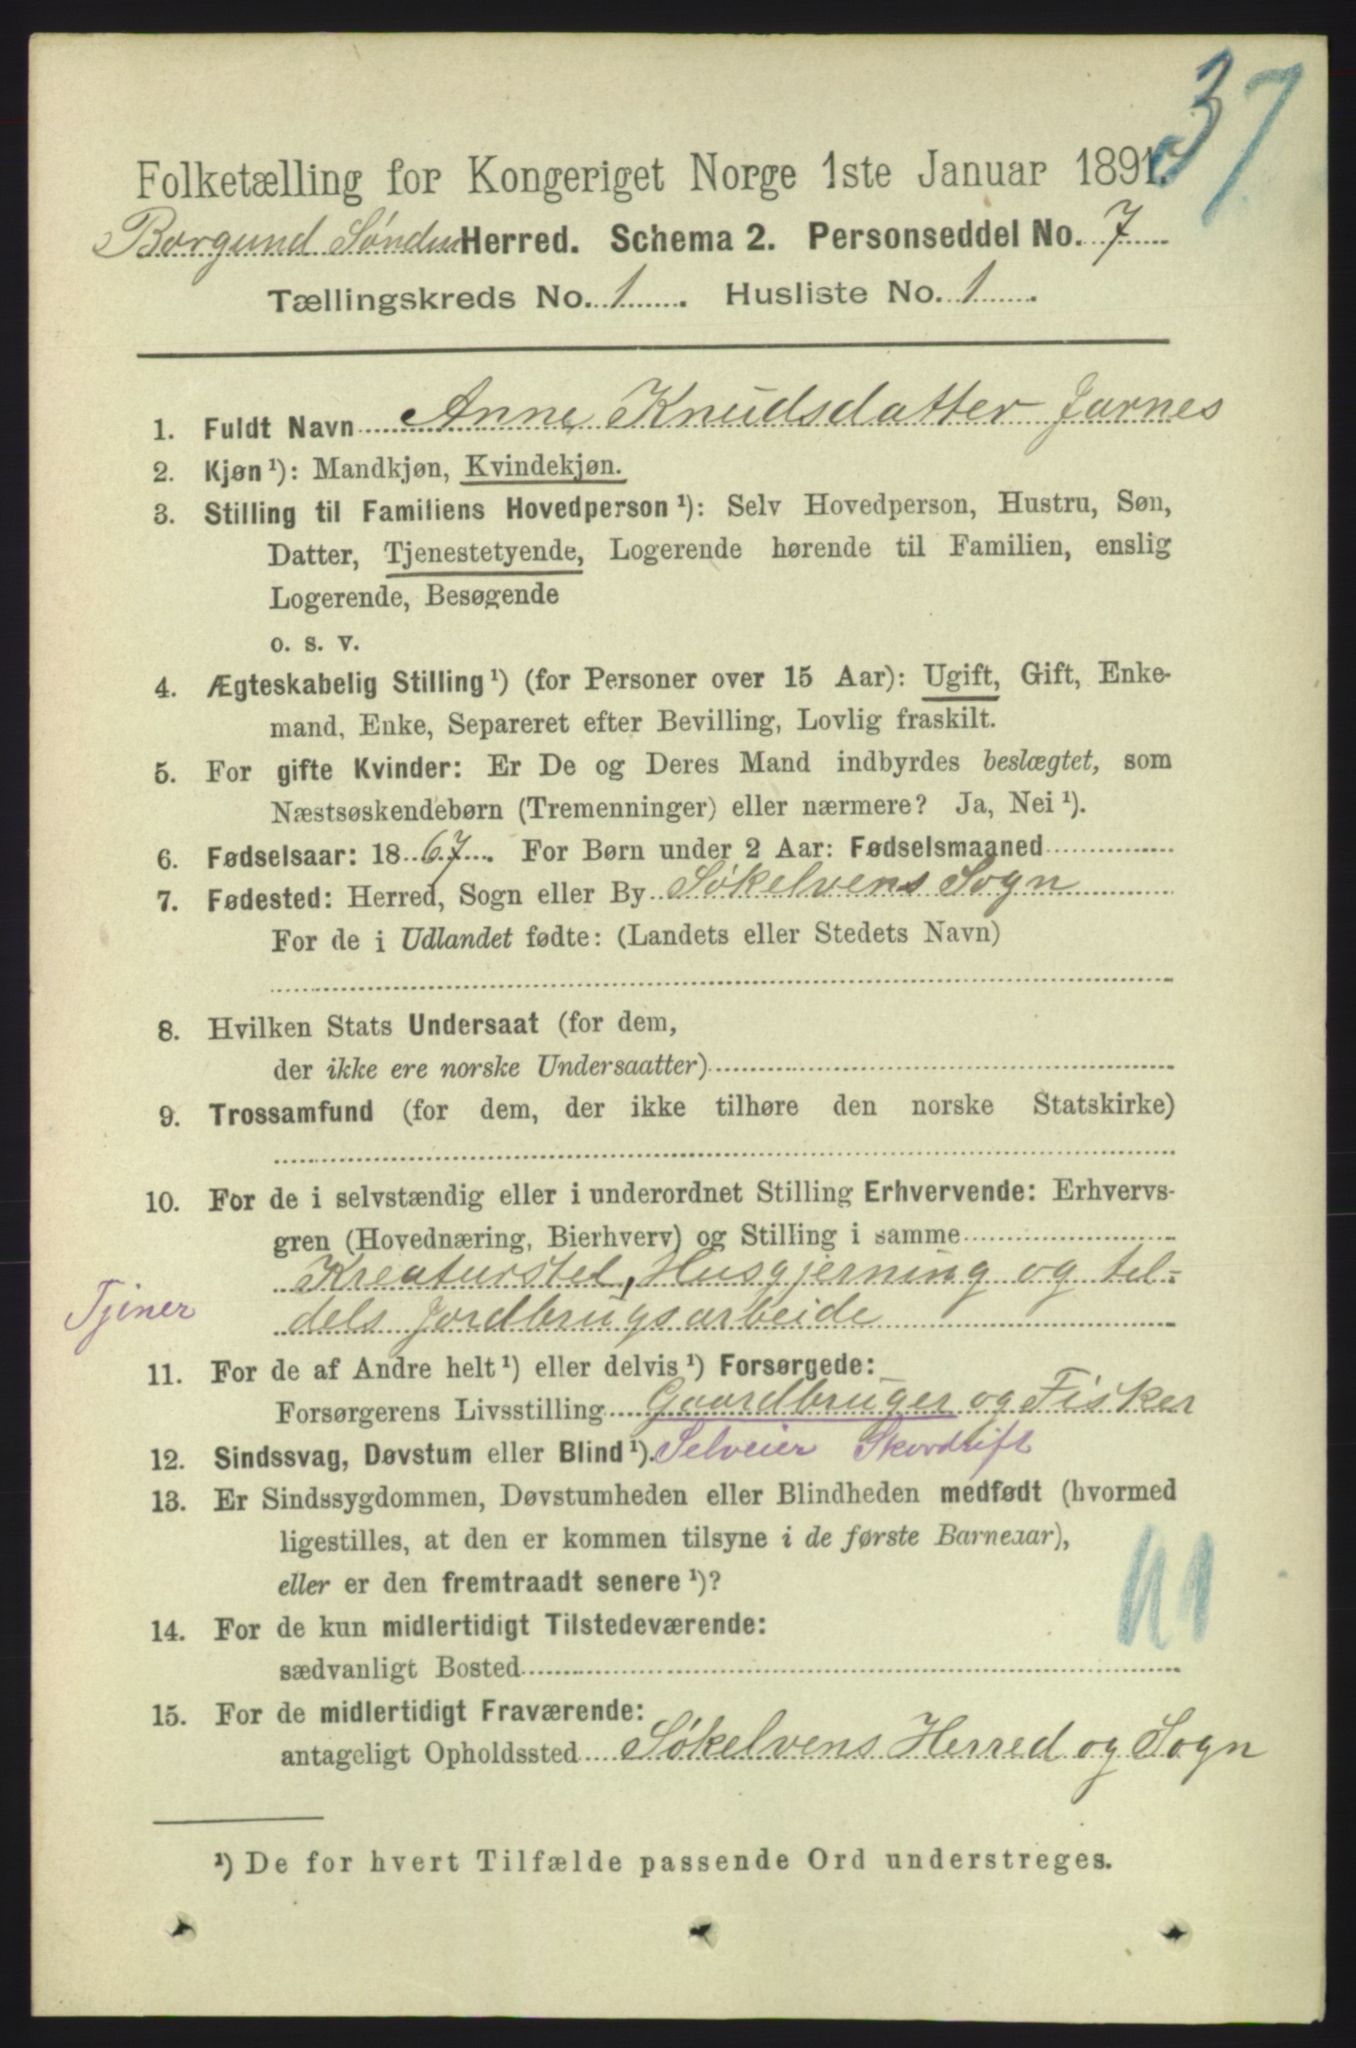 37
Folketælling for Kongeriget Norge 1ste Januar 1891.
Borgund Søndre Herred. Schema 2. Personseddel No. 7
Tællingskreds No. 1. Husliste No. 1.
1. Fuldt Navn Anne Knudsdatter Jarnes
2. Kjøn ¹): Mandkjøn, Kvindekjøn.
3. Stilling til Familiens Hovedperson ¹): Selv Hovedperson, Hustru, Søn,
Datter, Tjenestetyende, Logerende hørende til Familien, enslig
Logerende, Besøgende
o. s. v.
4. Ægteskabelig Stilling ¹) (for Personer over 15 Aar): Ugift, Gift, Enke-
mand, Enke, Separeret efter Bevilling, Lovlig fraskilt.
5. For gifte Kvinder: Er De og Deres Mand indbyrdes beslægtet, som
Næstsøskendebørn (Tremenninger) eller nærmere? Ja, Nei ¹).
6. Fødselsaar: 1867. For Børn under 2 Aar: Fødselsmaaned
7. Fødested: Herred, Sogn eller By Søkelvens Sogn
For de i Udlandet fødte: (Landets eller Stedets Navn)
8. Hvilken Stats Undersaat (for dem,
der ikke ere norske Undersaatter)
9. Trossamfund (for dem, der ikke tilhøre den norske Statskirke)
10. For de i selvstændig eller i underordnet Stilling Erhvervende: Erhvervs-
gren (Hovednæring, Bierhverv) og Stilling i samme
Kreaturstel, Husgjerning og til-
Tjiner dels Jordbrugsarbeide
11. For de af Andre helt ¹) eller delvis ¹) Forsørgede:
Forsørgerens Livsstilling Gaardbruger og Fisker
12. Sindssvag, Døvstum eller Blind ¹). Selveier
13. Er Sindssygdommen, Døvstumheden eller Blindheden medfødt (hvormed
ligestilles, at den er kommen tilsyne i de første Barneaar),
eller er den fremtraadt senere ¹)?
14. For de kun midlertidigt Tilstedeværende:
sædvanligt Bosted
15. For de midlertidigt Fraværende:
antageligt Opholdssted Søkelvens Herred og Sogn
¹) De for hvert Tilfælde passende Ord understreges.